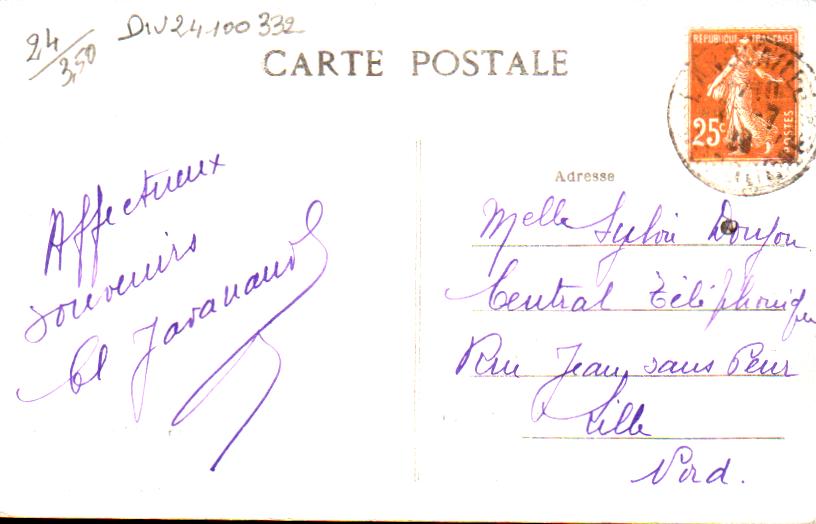 24/3,50
DIV24100332
CARTE POSTALE
RÉPUBLIQUE FRANÇAISE
25c
POSTES
Affectueux
souvenirs
Adresse
Melle Sylvie Donjon
Central Téléphonique
Rue Jean sans Peur
Lille
Nord.